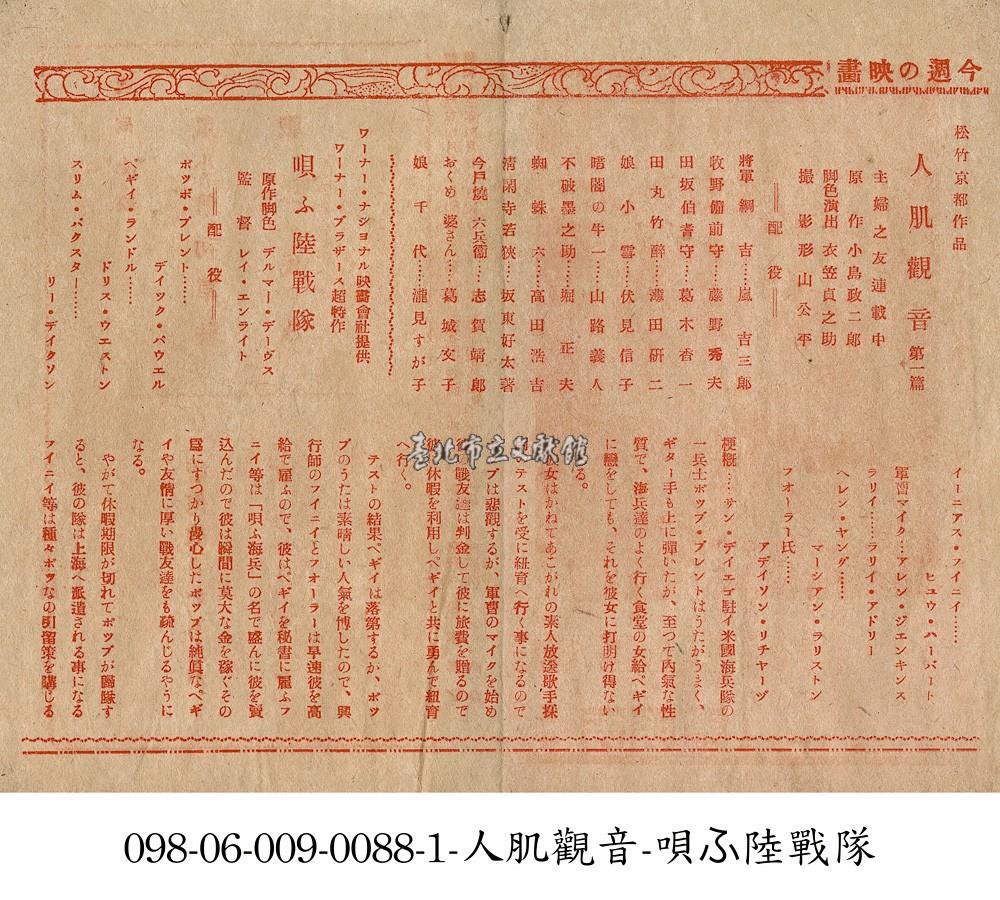 今週の映畫
松竹京都作品
人肌觀音 第一篇
主婦之友連載中
原作 小島政二郎
脚色演出 衣笠貞之助
撮影 形山公平
＝配役＝
將軍綱吉…嵐吉三郎
牧野備前守…藤野秀夫
田坂伯耆守…葛木香一
田丸竹醉…薄田研二
娘小雪…伏見信子
暗闇の牛一…山路義人
不破墨之助…堀正夫
蜘蛛六…高田浩吉
淸閑寺若狹…坂東好太郎
今戸燒六兵衞…志賀靖郎
おくめ婆さん…葛城文子
娘千代…瀧見すが子
ワーナー・ナショナル映畫會社提供
ワーナー・ブラザース超特作
唄ふ陸戰隊
原作脚色 デルマー・デーヴス
監督 レイ・エンライト
＝配役＝
ボッブ・ブレント……
デイック・パウエル
ペギイ・ランドル……
ドリス・ウエストン
スリム・バクスター……
リー・デイクソン
イーニアス・フイニイ……
ヒュウ・ハーバート
軍曹マイク…アレン・ジエンキンス
ラリイ……ラリイ・アドラー
ヘレン・ヤング……
マーシアン・ラリストン
フオーラー氏……
アデイソン・リチャーヅ
梗槪――サン・デイエゴ駐イ米國海兵隊の
一兵士ボッブ・ブレントはうたがうまく、
ギター手も上に彈いたが、至つて内氣な性
質で、海兵達のよく行く食堂の女給ペギイ
に戀をしても、それを彼女に打明け得ない
る。
彼女はかねてあこがれの素人放送歌手採
用テストを受に紐育へ行く事になるので
ボッブは悲觀するが、軍曹のマイクを始め
戰友達は判金して彼に旅費を贈るので
彼は休暇を利用しペギイと共に勇んで紐育
へ行く。
テストの結果ペギイは落第するが、ボッ
ブのうたは素晴しい人氣を博したので、興
行師のフイニイとフオーラーは早速彼を高
給で雇ふので、彼はペギイを秘書に雇ふフ
ニイ等は「唄ふ海兵」の名で盛んに彼を賣
込んだので彼は瞬間に莫大な金を稼ぐその
爲にすつかり慢心したボッブは純眞なペギ
イや友情に厚い戰友達をも疏んじるやうに
なる。
やがて休暇期限が切れてボッブが歸隊す
ると、彼の隊は上海へ派遣される事になる
フイニイ等は種々ボッブの引留策を講じる
臺北市立文獻館
098-06-009-0088-1-人肌觀音-唄ふ陸戰隊